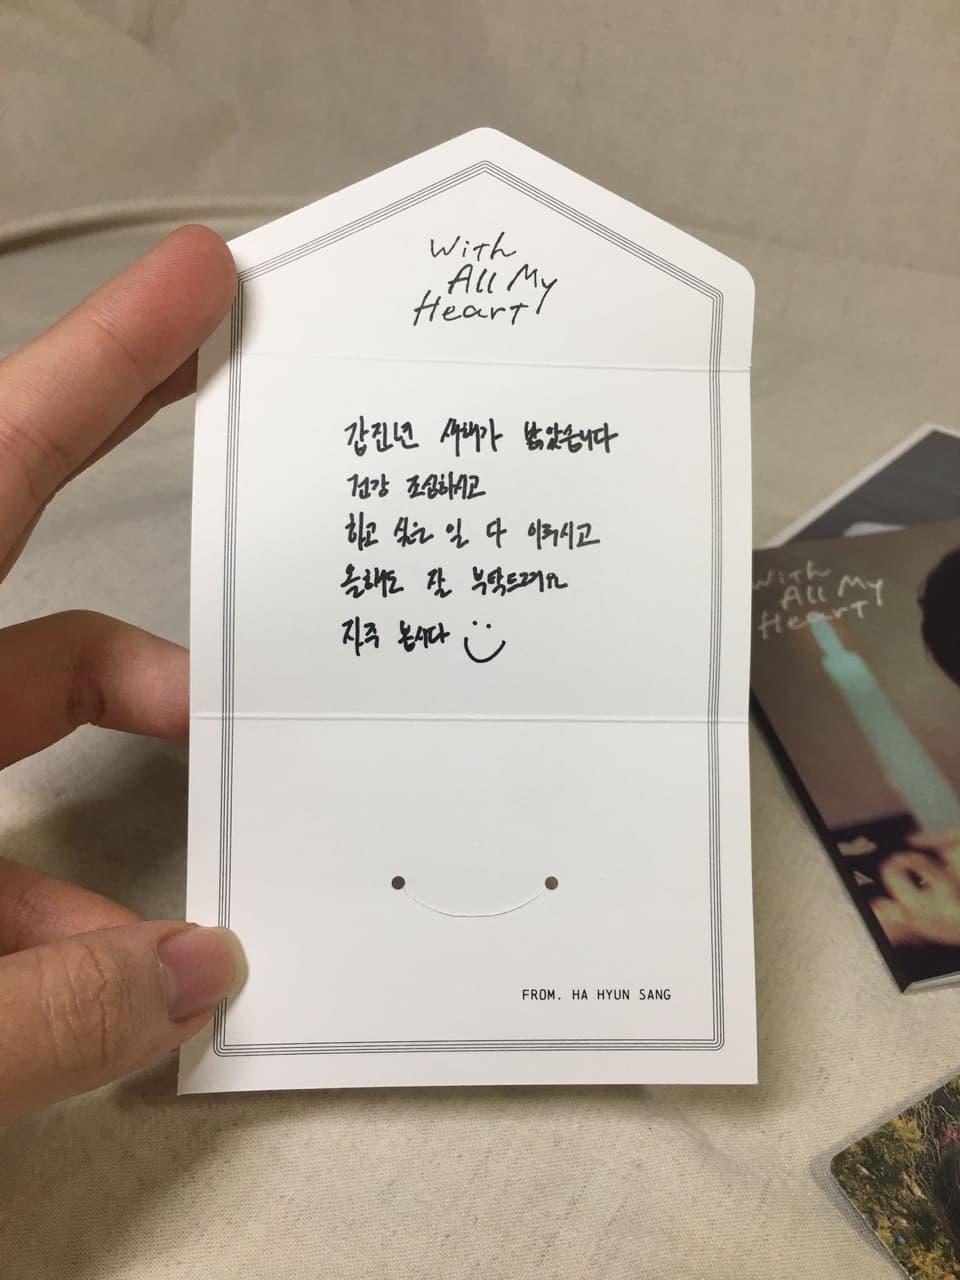 With
All My
Heart
갑진년 새해가 밝았습니다
건강 조심하시고
하고 싶은 일 다 이루시고
올해도 잘 부탁드려요
자주 봅시다
FROM. HA HYUN SANG
With
All My
Heart